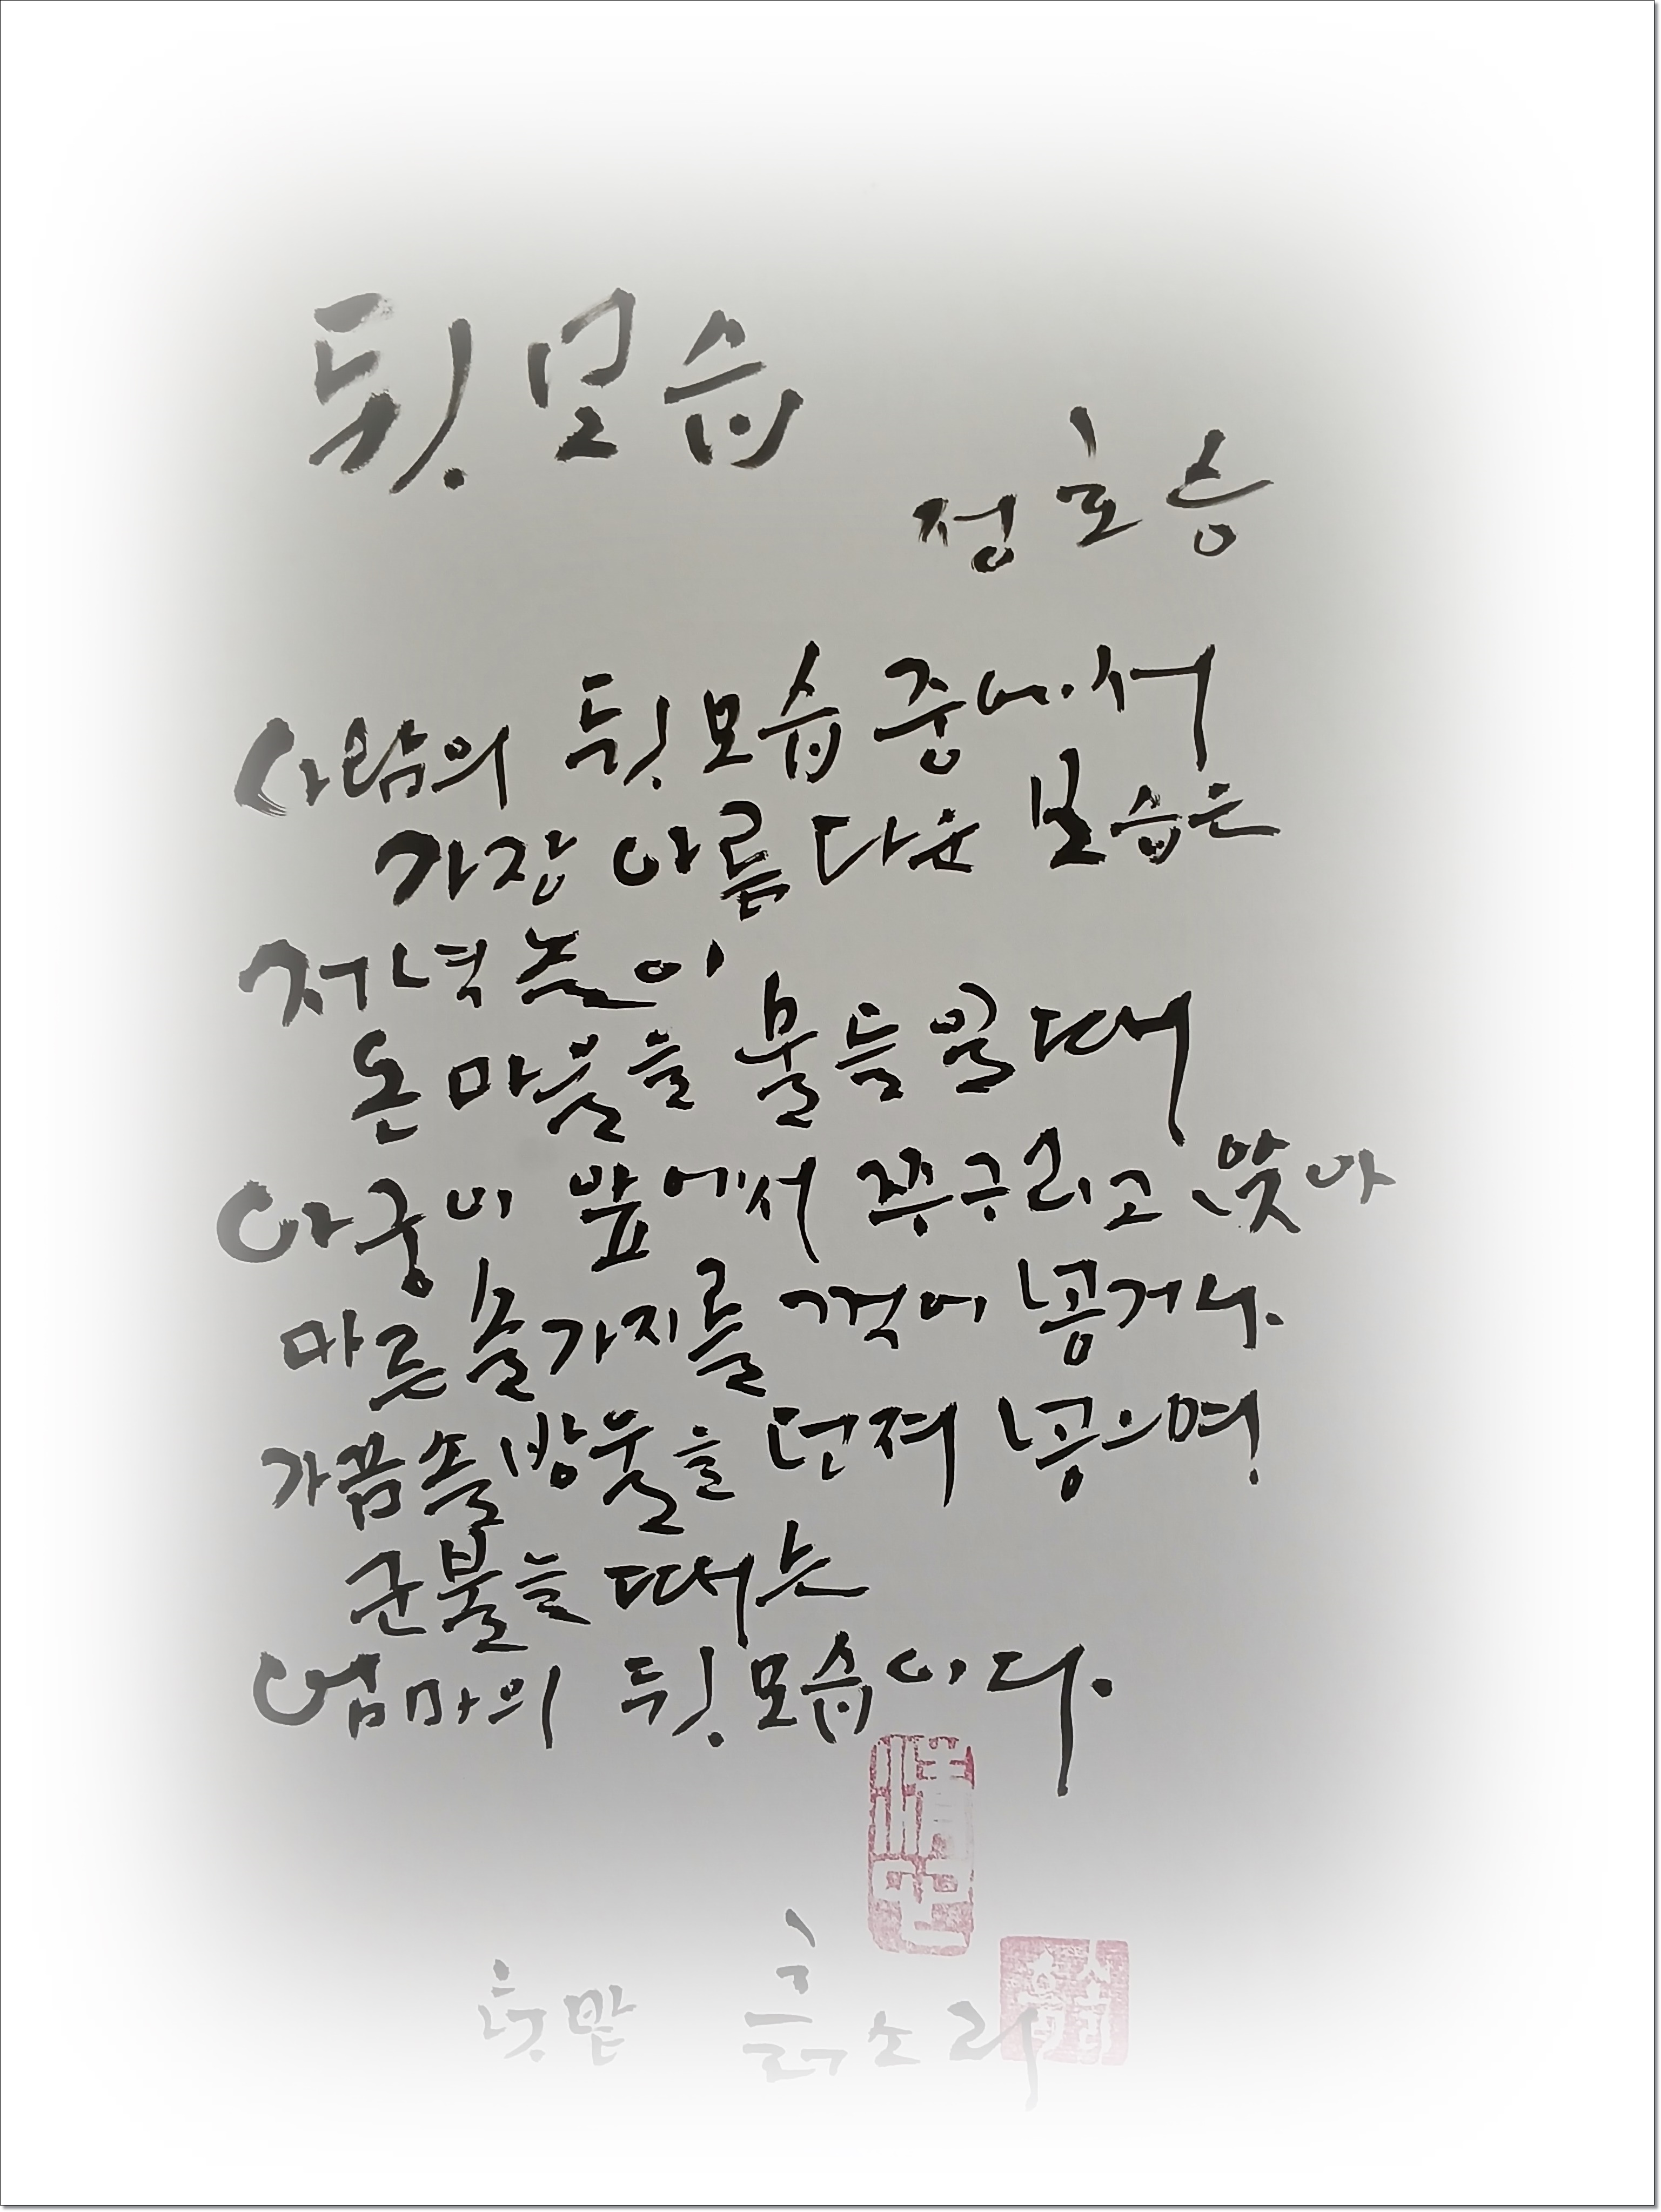 뒷모습
정호승
사람의 뒷모습 중에서
가장 아름다운 모습은
저녁놀이
온 마을을 물들일 때
아궁이 앞에서 쭈구리고 앉아
마른 솔가지를 꺾어 넣거나
가끔 솔방울을 던져 넣으며
군불을 때는
엄마의 뒷모습이다.
텃밭 흙소리